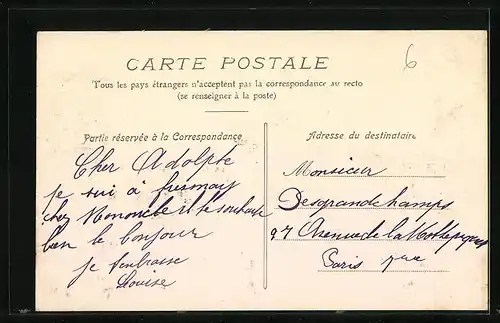 6
CARTE POSTALE
Tous les pays étrangers n'acceptent pas la correspondance au recto
(se renseigner à la poste)
Partie réservée à la Correspondance
Cher Adolphe
je sui à fresnay
chez Mononcle il te souhaite
bien le bonjour
je t'embrasse
Louise
Adresse du destinataire
Monsieur
Desgrandchamps
97 Avenue de la Motte
Paris